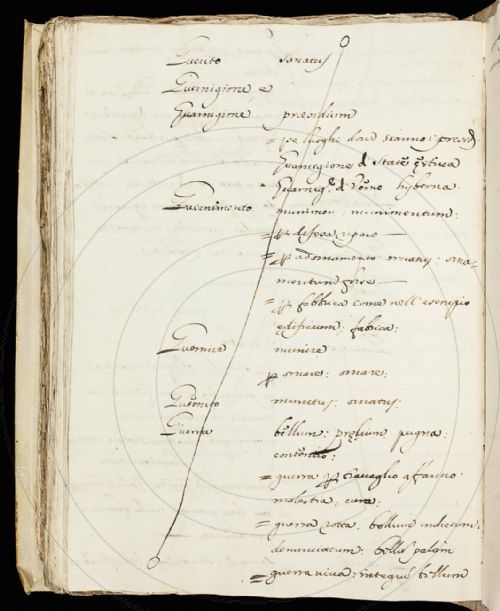 Guerito sanatus
Guernigione, e
Guarnigione praesidium
= pe luoghi dove stanno i presid.
Guarnigione d state
Guarnig.e d verno hyberna
Guernimento munimen: munimentum:
= p difesa, riparo —
= p adornamento ornatus: orna=
mentum —
= p fabbrica come nell'esempio
edificium; fabrica:
Guernire munire
p ornare: ornare:
Guernito munitus; ornatus:
Guerra bellum: prelium pugna:
contentio:
= guerra p travaglio affanno
molestia; cura:
= guerra rotta. bellum indictum:
denunciatum: palam
= guerra viva: bellum